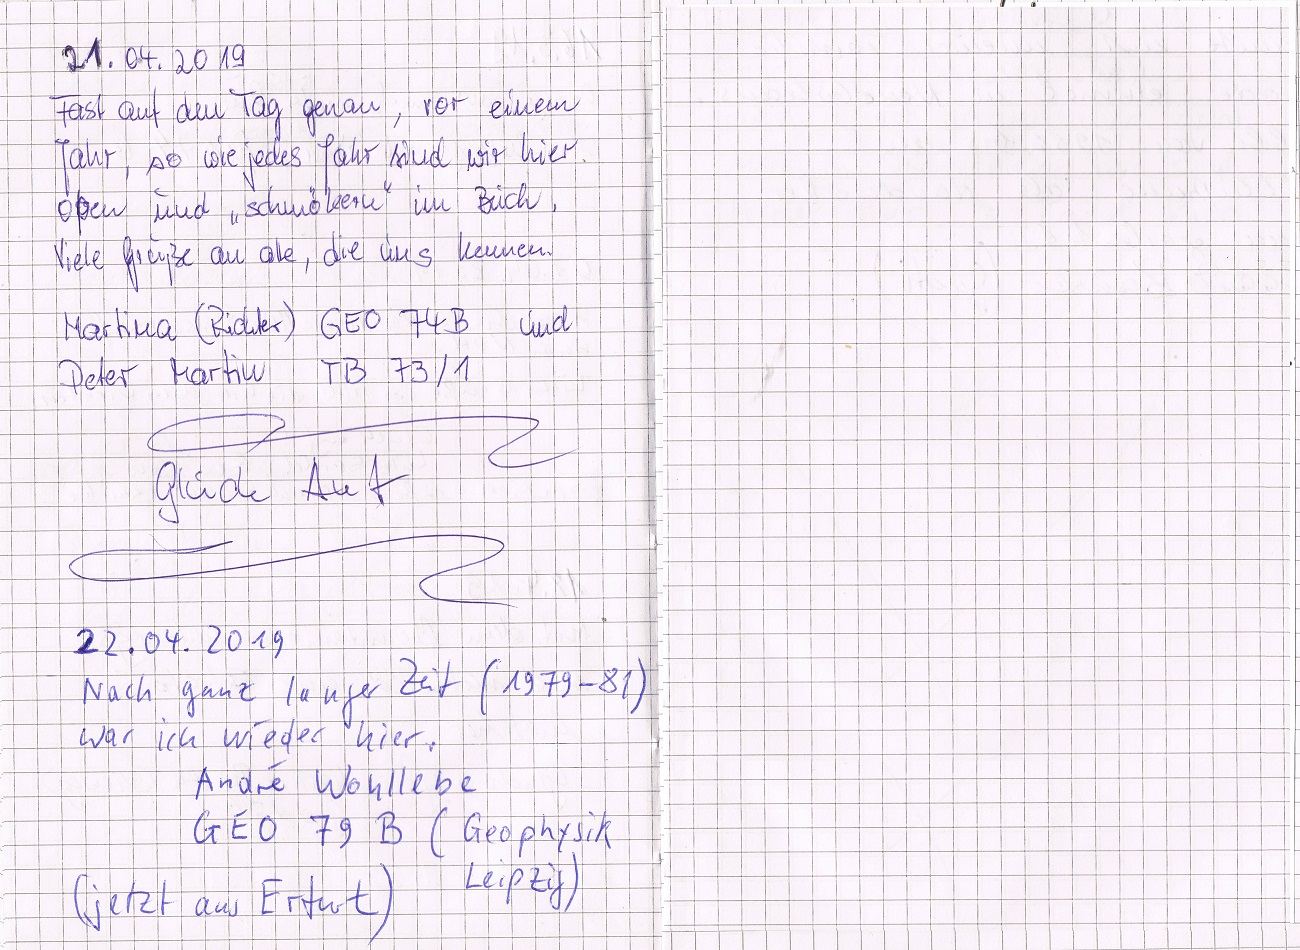 21.04.2019
Fast auf den Tag genau, vor einem
Jahr, so wie jedes Jahr sind wir hier
oben und „schmökern“ im Buch.
Viele Grüße an alle, die uns kennen.
Martina (Richter) GEO 74B und
Peter Martin TB 73/1
Glück Auf
22.04.2019
Nach ganz langer Zeit (1979-81)
war ich wieder hier.
André Wohllebe
GEO 79 B (Geophysik
Leipzig)
(jetzt aus Erfurt)